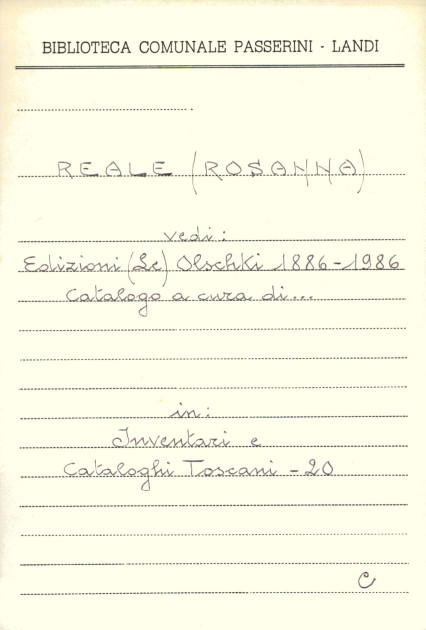 BIBLIOTECA COMUNALE PASSERINI - LANDI
REALE (ROSANNA)
vedi:
Edizioni (Le) Olschki 1886-1986
Catalogo a cura di...
in:
Inventari e
Cataloghi Toscani - 20
C